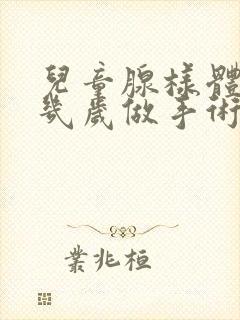 兒童腺樣體
幾歲做手術
業兆桓